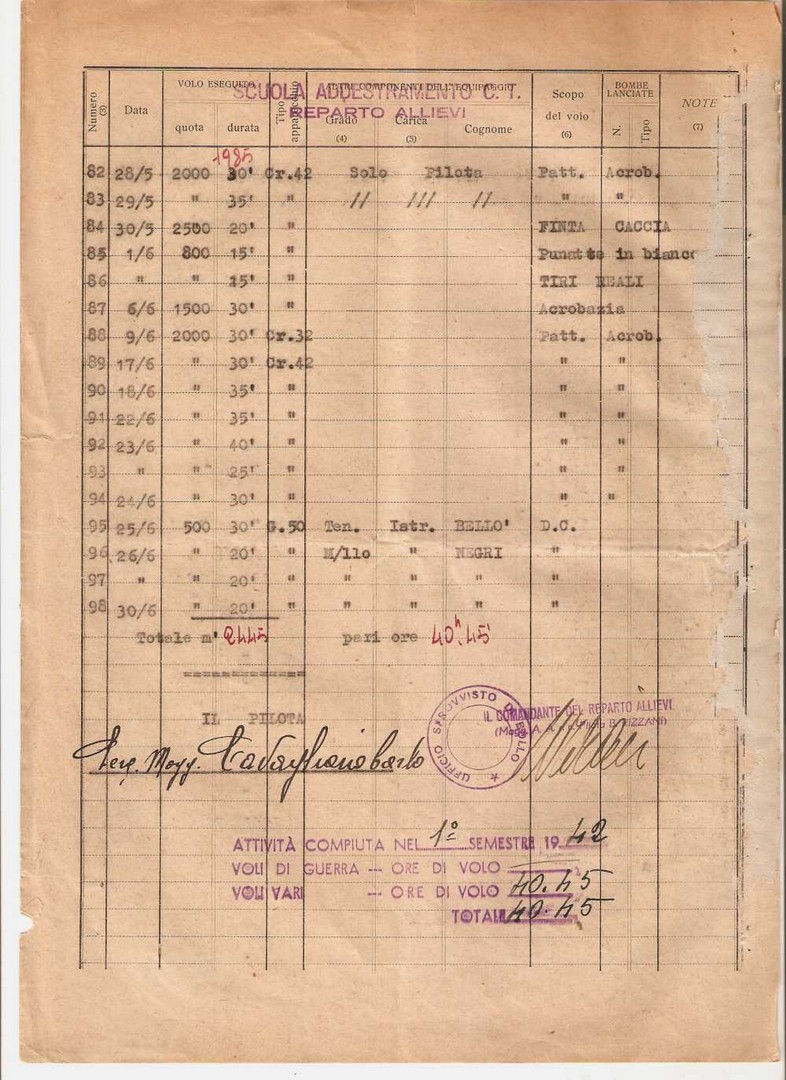 SCUOLA ADDESTRAMENTO C. T.
REPARTO ALLIEVI
Numero (3) Data VOLO ESEGUITO quota durata Tipo apparecchio ALTRI COMPONENTI DELL'EQUIPAGGIO Grado (4) Carica (5) Cognome Scopo del volo (6) BOMBE LANCIATE N. Tipo NOTE (7)
1985
82 28/5 2000 30' Cr.42 Solo Pilota Patt. Acrob.
83 29/5 " 35' " // /// // " "
84 30/5 2500 20' " FINTA CACCIA
85 1/6 800 15' " Puntate in bianco
86 " " 15' " TIRI REALI
87 6/6 1500 30' " Acrobazia
88 9/6 2000 30' Cr.32 Patt. Acrob.
89 17/6 " 30' Cr.42 " "
90 18/6 " 35' " " "
91 22/6 " 35' " " "
92 23/6 " 40' " " "
93 " " 25' " " "
94 24/6 " 30' " "
95 25/6 500 30' G.50 Ten. Istr. BELLO' D.C.
96 26/6 " 20' " M/llo " NEGRI "
97 " " 20' " " " " "
98 30/6 " 20' " " " " "
Totale m' 2445 pari ore 40h.45'
============
IL PILOTA
UFFICIO SPROVVISTO DI BOLLO
IL COMANDANTE DEL REPARTO ALLIEVI
Serg. Magg. Cavagliano
ATTIVITÀ COMPIUTA NEL 1° SEMESTRE 19 42
VOLI DI GUERRA -- ORE DI VOLO
VOLI VARI -- ORE DI VOLO 40.45
TOTALE 40.45